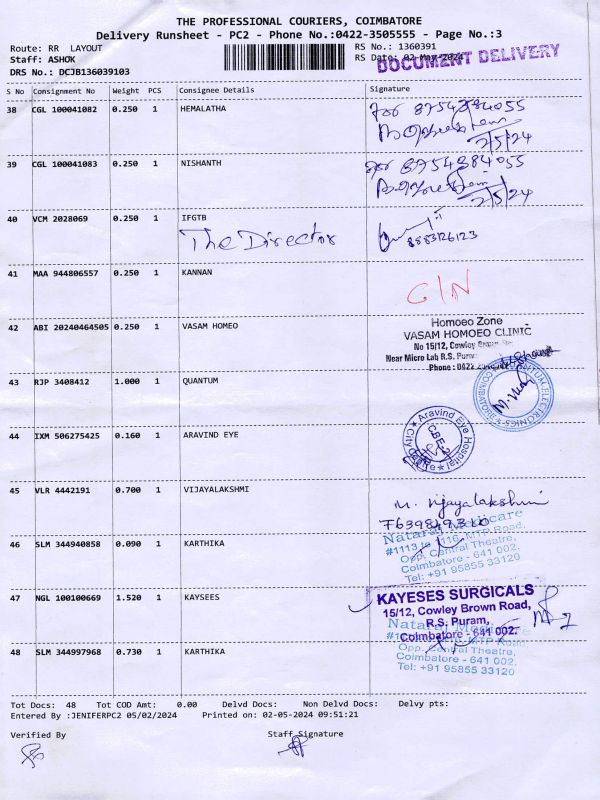 THE PROFESSIONAL COURIERS, COIMBATORE
Delivery Runsheet - PC2 - Phone No.:0422-3505555 - Page No.:3
Route: RR LAYOUT
RS No.: 1360391
Staff: ASHOK
RS Date: 02-May-2024
DOCUMENT DELIVERY
DRS No.: DCJB136039103
S No Consignment No Weight PCS Consignee Details Signature
38 CGL 100041082 0.250 1 HEMALATHA
for 8754384055
2/5/24
39 CGL 100041083 0.250 1 NISHANTH
for 8754384055
2/5/24
40 VCM 2028069 0.250 1 IFGTB
The Director
8883126123
41 MAA 944806557 0.250 1 KANNAN
C/N
42 ABI 20240464505 0.250 1 VASAM HOMEO
Homoeo Zone
VASAM HOMOEO CLINIC
No 15/12, Cowley Brown
Near Micro Lab R.S. Puram
Phone: 0422
43 RJP 3408412 1.000 1 QUANTUM
QUANTUM ELECTRONICS COIMBATORE
44 IXM 506275425 0.160 1 ARAVIND EYE
Aravind Eye Hospital
City Centre
CBE-2
45 VLR 4442191 0.700 1 VIJAYALAKSHMI
M. Vijayalakshmi
46 SLM 344940858 0.090 1 KARTHIKA
Nataraj Medicare
#1113 to 1116, MTP Road,
Opp. Central Theatre,
Coimbatore - 641 002.
Tel: +91 95855 33120
47 NGL 100100669 1.520 1 KAYSEES
KAYESES SURGICALS
15/12, Cowley Brown Road,
R.S. Puram,
Coimbatore - 641 002.
48 SLM 344997968 0.730 1 KARTHIKA
Nataraj Medicare
MTP Road,
Opp. Central Theatre,
Coimbatore - 641 002.
Tel: +91 95855 33120
Tot Docs: 48 Tot COD Amt: 0.00 Delvd Docs: Non Delvd Docs: Delvy pts:
Entered By :JENIFERPC2 05/02/2024 Printed on: 02-05-2024 09:51:21
Verified By Staff Signature